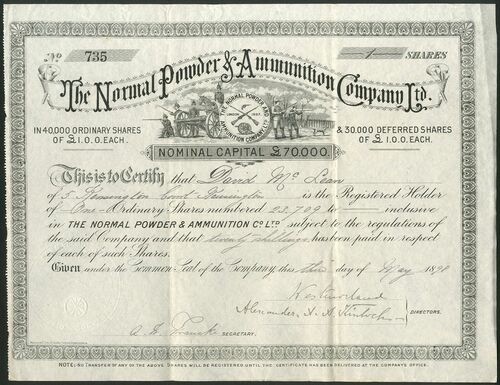 No 735 1 SHARES
The Normal Powder & Ammunition Company Ltd.
THE NORMAL POWDER AND
LONDON 1897
AMMUNITION COMPANY LD
IN 40,000 ORDINARY SHARES & 30,000 DEFERRED SHARES
OF £1.0.0. EACH. OF £1.0.0. EACH.
NOMINAL CAPITAL £70,000.
This is to Certify that David McLean
of 5 Kensington Court Kensington is the Registered Holder
of One Ordinary Shares numbered 23,709 to inclusive
in THE NORMAL POWDER & AMMUNITION CO LTD subject to the regulations of
the said Company and that twenty shillings has been paid in respect
of each of such Shares.
Given under the Common Seal of the Company, this third day of May 1898
Alexander A. A. Kinloch DIRECTORS.
SECRETARY.
NOTE: NO TRANSFER OF ANY OF THE ABOVE SHARES WILL BE REGISTERED UNTIL THE CERTIFICATE HAS BEEN DELIVERED AT THE COMPANY'S OFFICE.